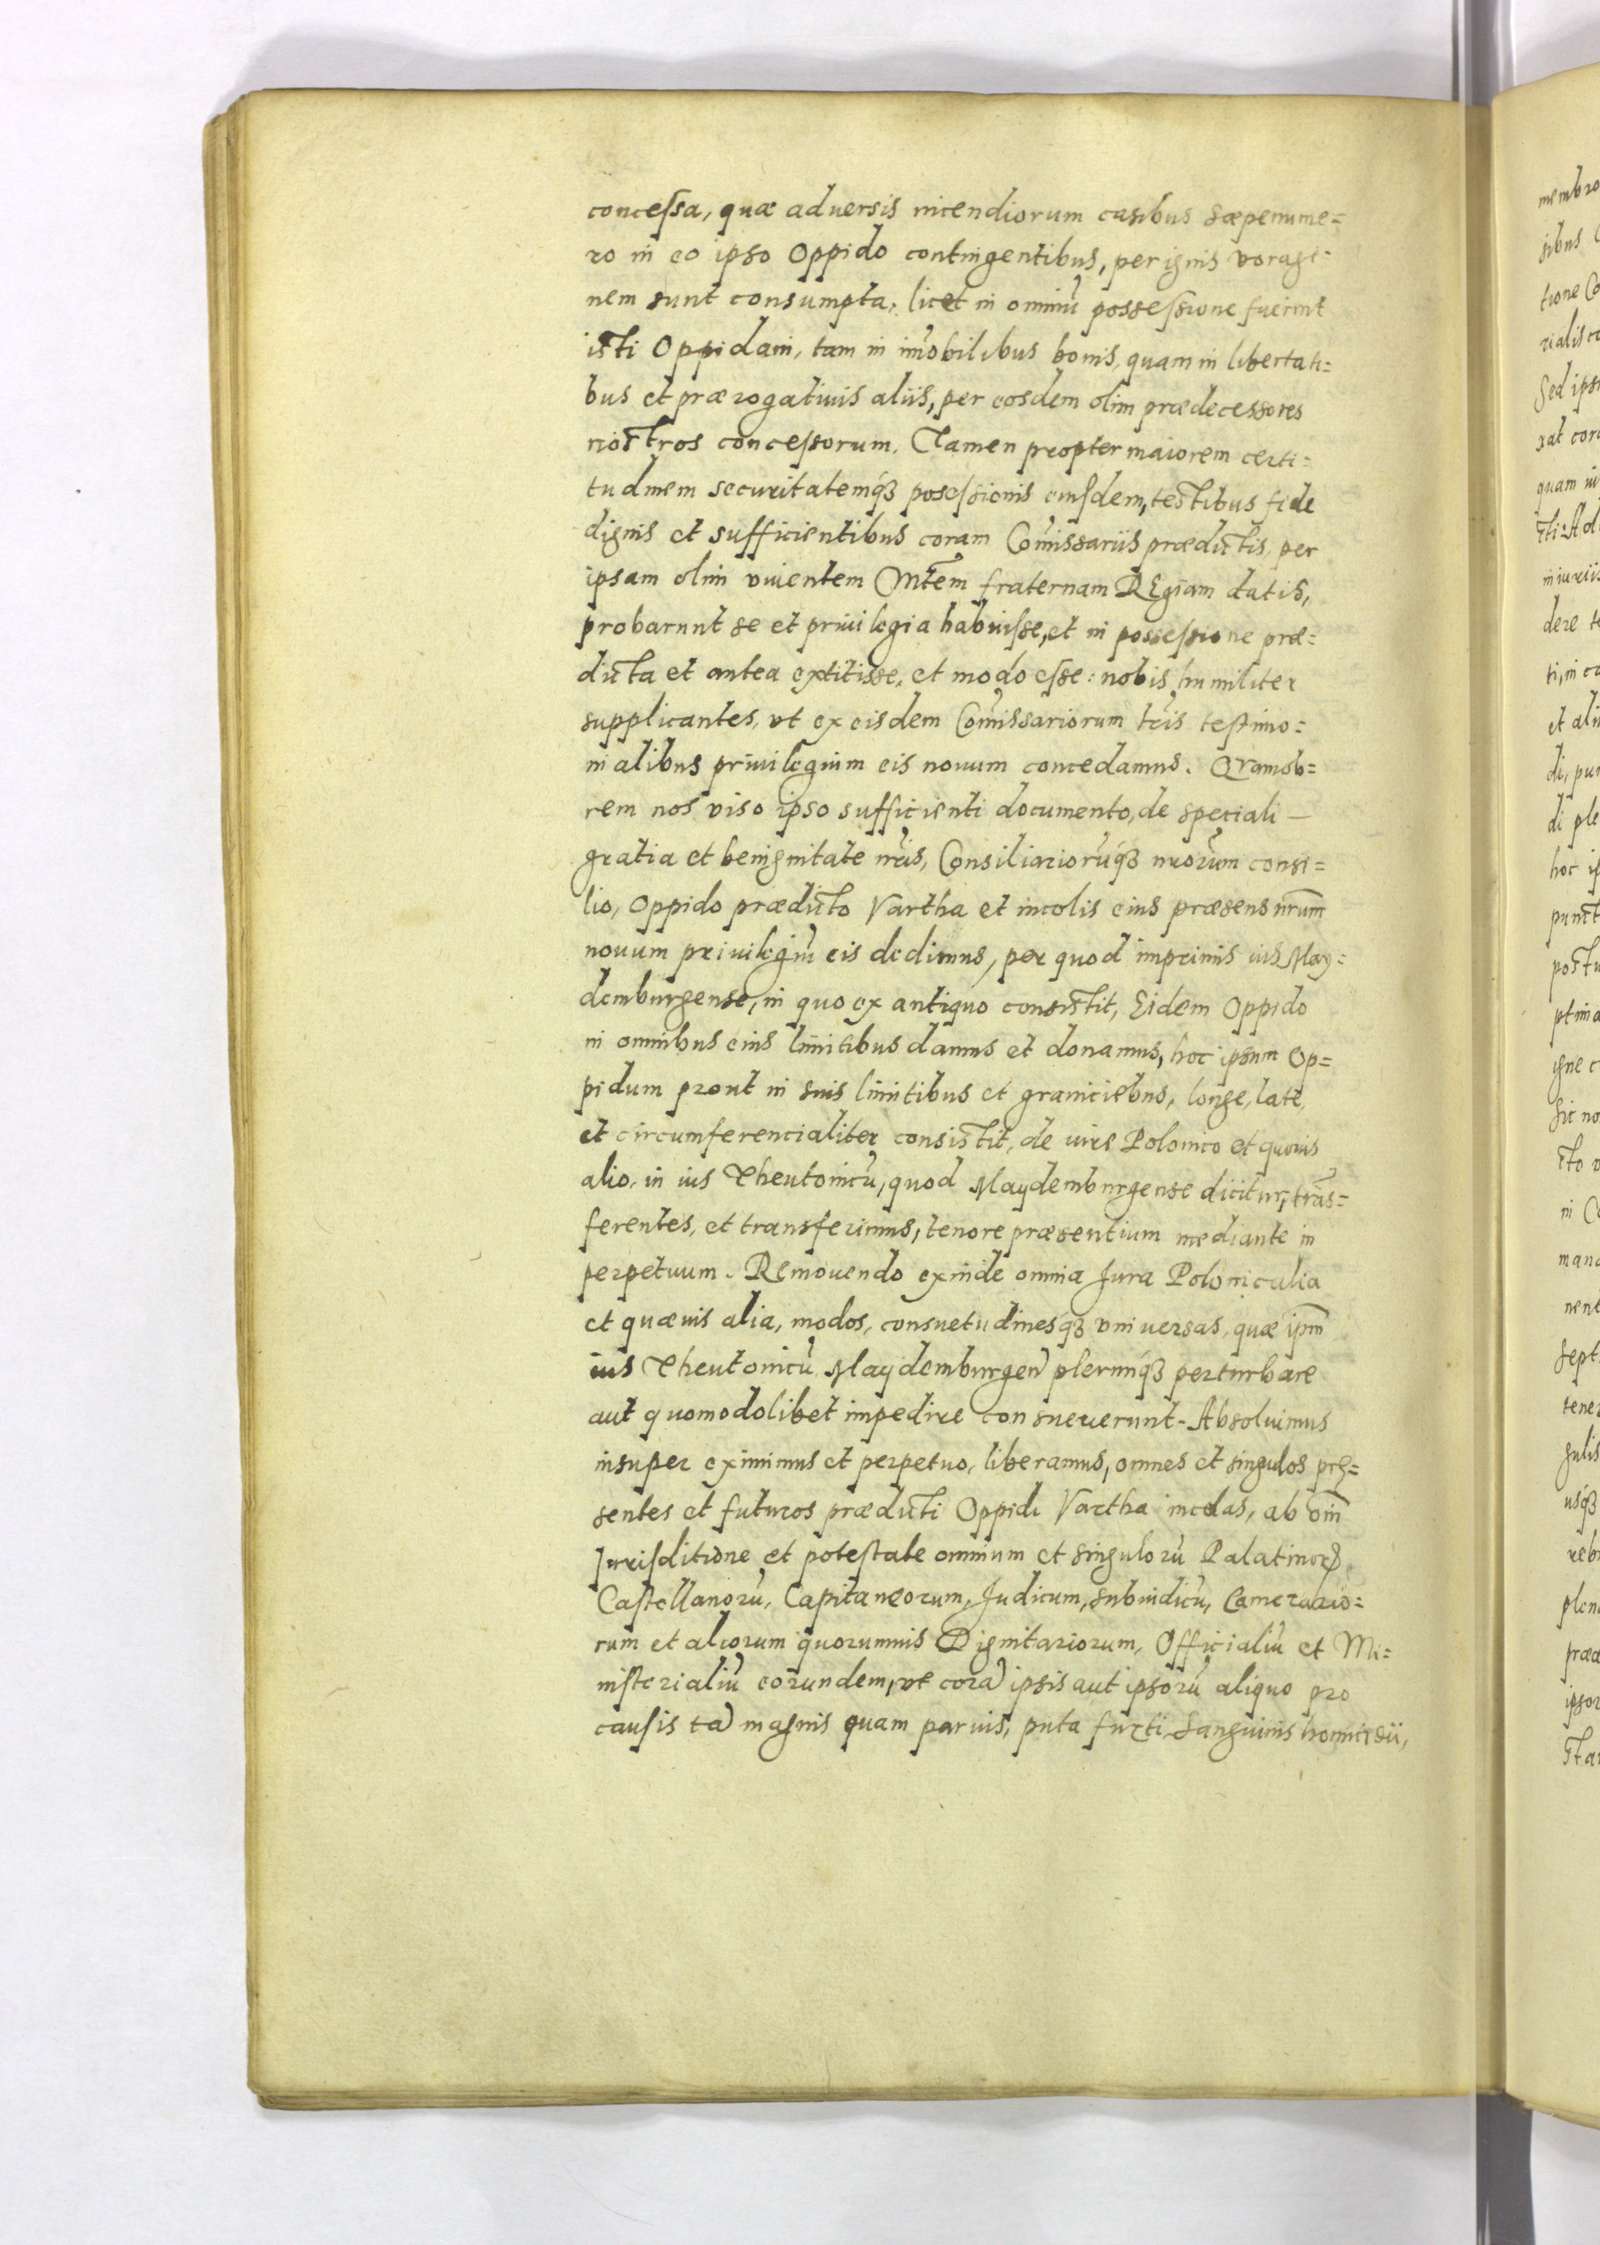 concessa, quæ aduersis incendiorum casibus sæpenume=
ro in eo ipso Oppido contingentibus, per ignis voragi=
nem sunt consumpta, licet in omniũ possessione fuerint
isti Oppidani, tam in im̃obilibus bonis, quam in libertati=
bus et prærogatiuis aliis, per eosdem olim prædecessores
nostros concessorum. Tamen propter maiorem certi=
tudinem securitatemq́ꝫ posessionis eiusdem, testibus fide
dignis et sufficientibus coram Com̃issariis prædictis, per
ipsam olim viuentem Mtẽm fraternam REgiam datis,
probarunt se et priuilegia habuisse, et in possessione præ=
dicta et antea extitisse, et modo esse: nobis humiliter
supplicantes, vt ex eisdem Com̃issariorum lr̃is testimo=
nialibus priuilegium eis nouum concedamus. Quamob=
rem nos viso ipso sufficienti documento, de speciali —
gratia et benignitate nr̃is, Consiliariorũq́ꝫ nr̃orum consi=
lio, Oppido prædicto Vartha et incolis eius præsens nr̃um
nouum priuilegiũ eis dedimus, per quod imprimis ius May=
demburgense, in quo ex antiquo consistit, Eidem Oppido
in omnibus eius limitibus damus et donamus, hoc ipsum Op=
pidum prout in suis limitibus et graniciebus, longe, late,
et circumferencialiter consistit, de iure Polonico et quouis
alio, in ius Theutonicũ, quod Maydemburgense dicitur, trãs=
ferentes, et transferimus, tenore præsentium mediante in
perpetuum. Remouendo exinde omnia Jura Polonicalia
et quæuis alia, modos, consuetudinesq́ꝫ vniuersas, quæ ipm̃
ius Theutonicũ Maydemburgeñ plerunq́ꝫ perturbare
aut quomodolibet impedire consueuerunt. Absoluimus
insuper eximimus et perpetuo, liberamus, omnes et singulos prę=
sentes et futuros prædicti Oppidi Vartha incolas, ab om̃i
Jurisditione et potestate omnium et singulorũ Palatinorꝝ,
Castellanorũ, Capitaneorum, Judicum, subiudicũ, Camerario=
rum et aliorum quorumuis Dignitariorum, Officialiũ et Mi=
nisterialiũ eorundem, vt corã ipsis aut ipsorũ aliquo pro
causis tã magnis quam paruis, puta furti sanguinis homicidii,